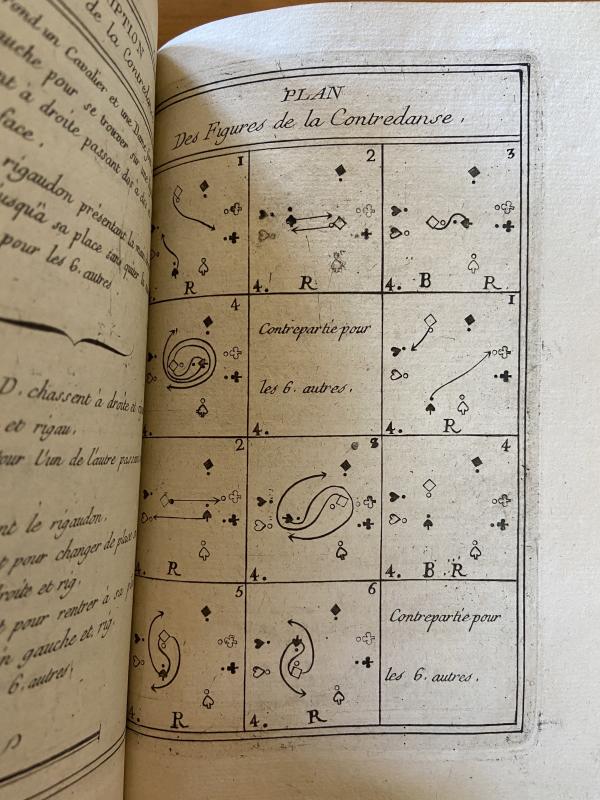 IPTION
de la
rond un Cavalier et une Dame
auche pour se trouver sur une
nt à droite passant dos à dos
face.
rigaudon présentant la main
usqu'à sa place sans
pour les 6. autres
D. chassent à droite et
et rigau.
our L'un de l'autre
nt le rigaudon.
t pour changer de place
roite et rig.
t pour rentrer à sa
n gauche et. rig.
6. autres.
PLAN
Des Figures de la Contredanse.
1
R
2
4. R
3
4. B R
4
4.
Contrepartie pour
les 6. autres.
4.
1
4. R
2
R
3
4.
4
4. B. R
5
R
6
4. R
Contrepartie pour
les 6. autres.